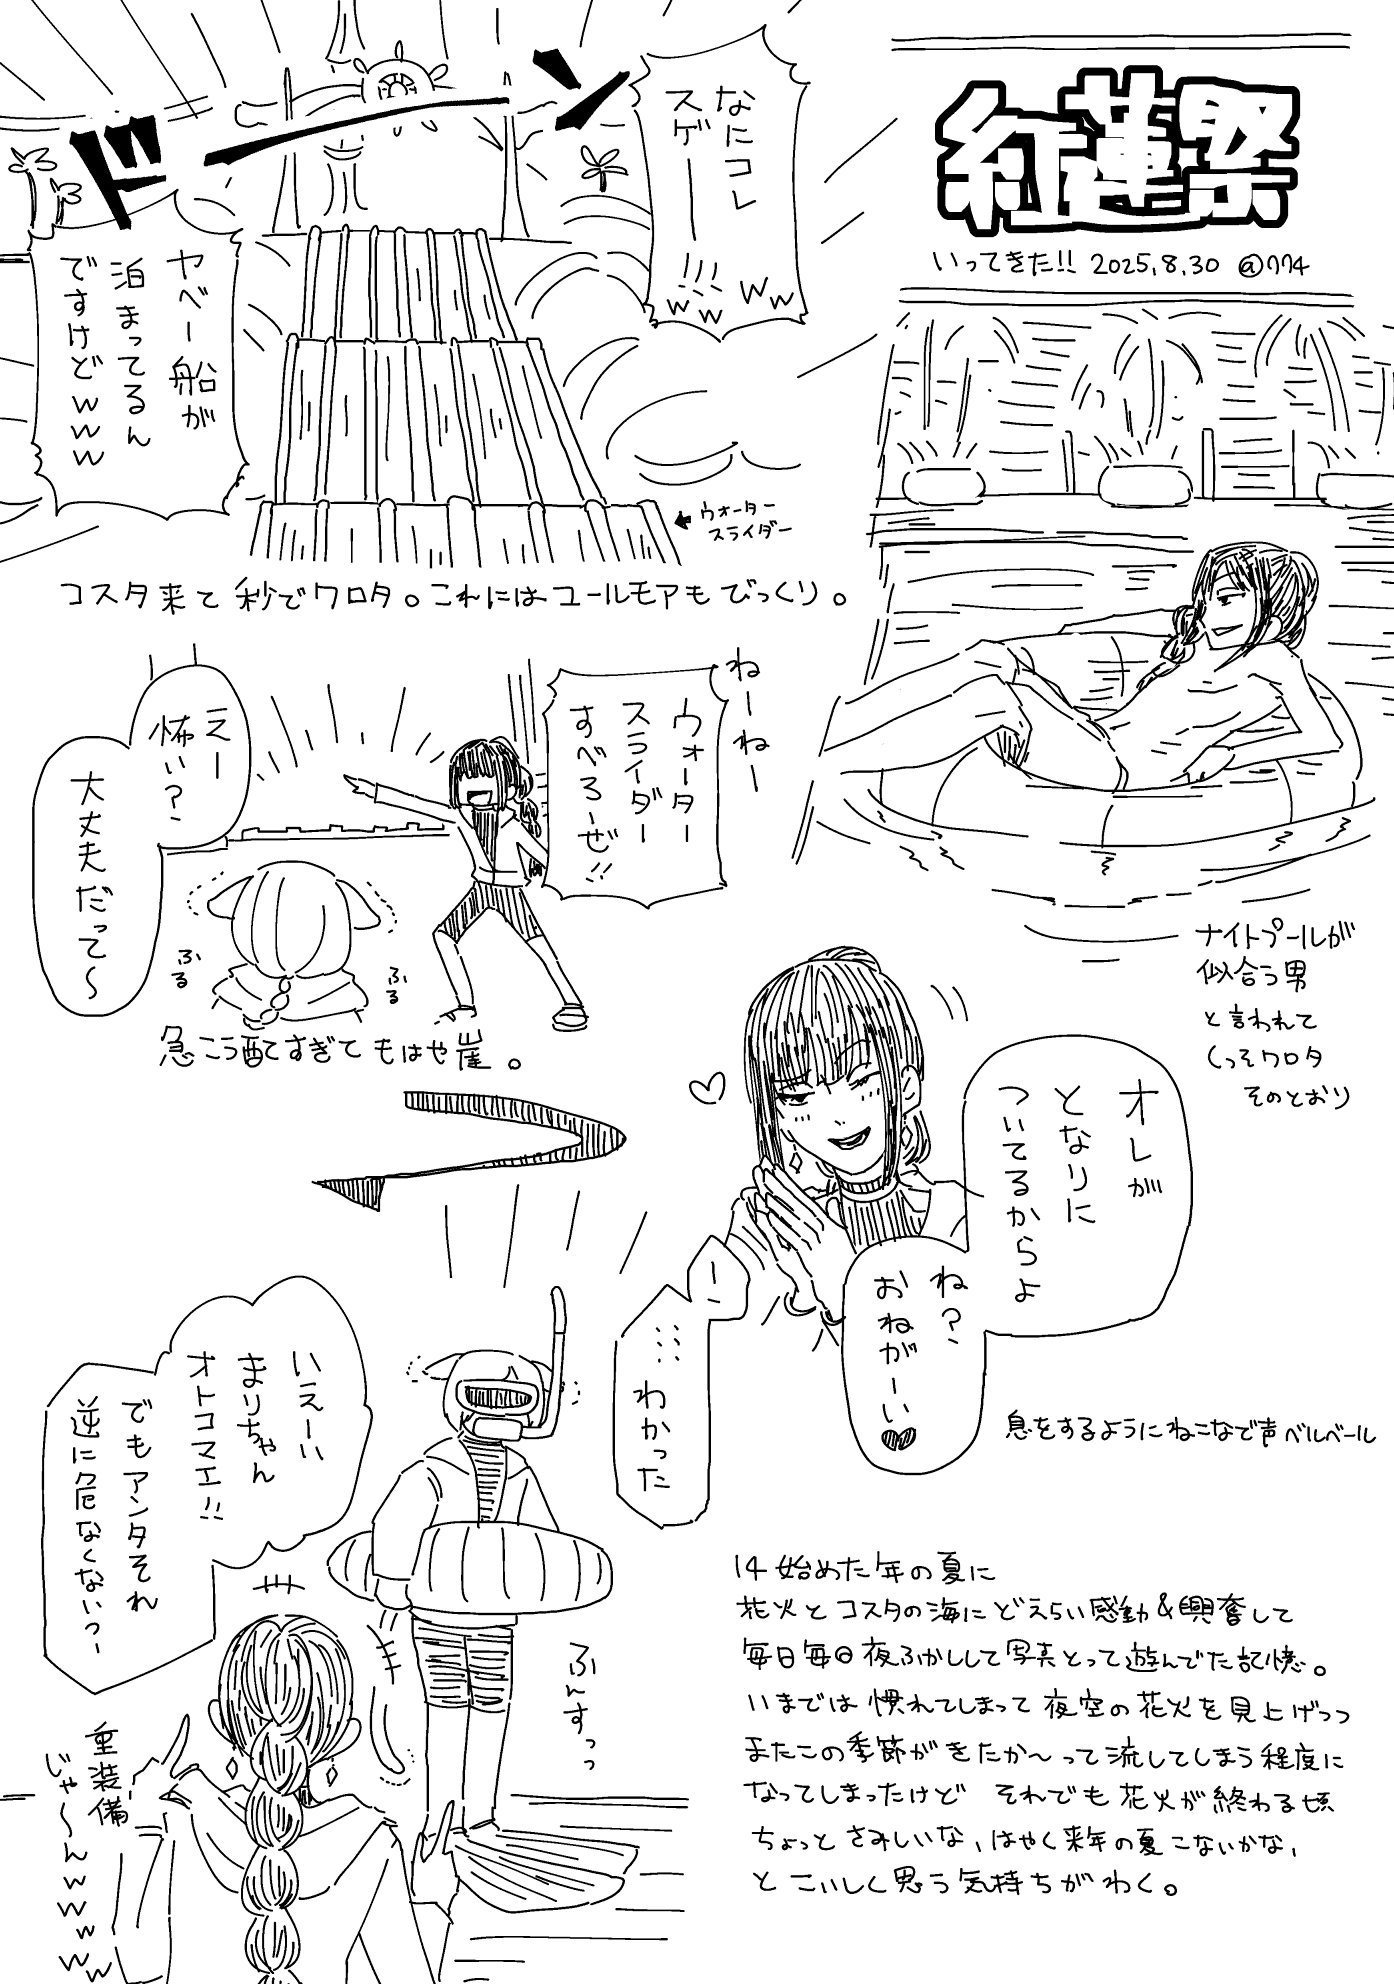 紅蓮祭
いってきた!! 2025.8.30 @774
なにコレ
スゲーーー!!!
ww ww
ドーン
ヤベー船が
泊まってるん
ですけどwww
←ウォーター
スライダー
コスタ来て秒でワロタ。これにはユールモアもびっくり。
ナイトプールが
似合う男
と言われて
くっそワロタ
そのとおり
ねーねー
ウォーター
スライダー
すべろーぜ!!
えー
怖い?
大丈夫だって〜
ふる
ふる
急こう配すぎてもはや崖。
オレが
となりに
ついてるからよ
ね?
おねがーい♥
!
……わかった
息をするようにねこなで声ベルベール
いえーい
まりちゃん
オトコマエ!!
でもアンタそれ
逆に危なくない?
ふんすっっ
重装備
じゃ〜んwwwww
14始めた年の夏に
花火とコスタの海にどえらい感動&興奮して
毎日毎日夜ふかしして写真とって遊んでた記憶。
いまでは慣れてしまって夜空の花火を見上げつつ
またこの季節がきたか〜って流してしまう程度に
なってしまったけど それでも花火が終わる頃
ちょっとさみしいな、はやく来年の夏こないかな、
とこいしく思う気持ちがわく。